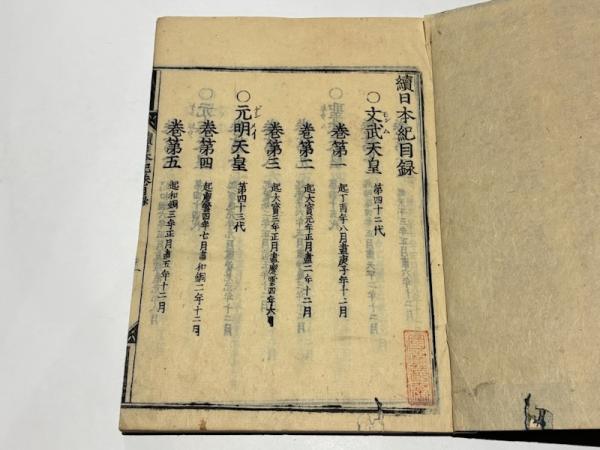 續日本紀目録
〇文武天皇 第四十二代
モンム
卷第一 起丁酉年八月盡庚子年十二月
卷第二 起大寳元年正月盡二年十二月
卷第三 起大寳三年正月盡慶雲四年六月
〇元明天皇 第四十三代
ゲンメイ
卷第四 起慶雲四年七月盡和銅二年十二月
卷第五 起和銅三年正月盡五年十二月
續日本紀卷目録